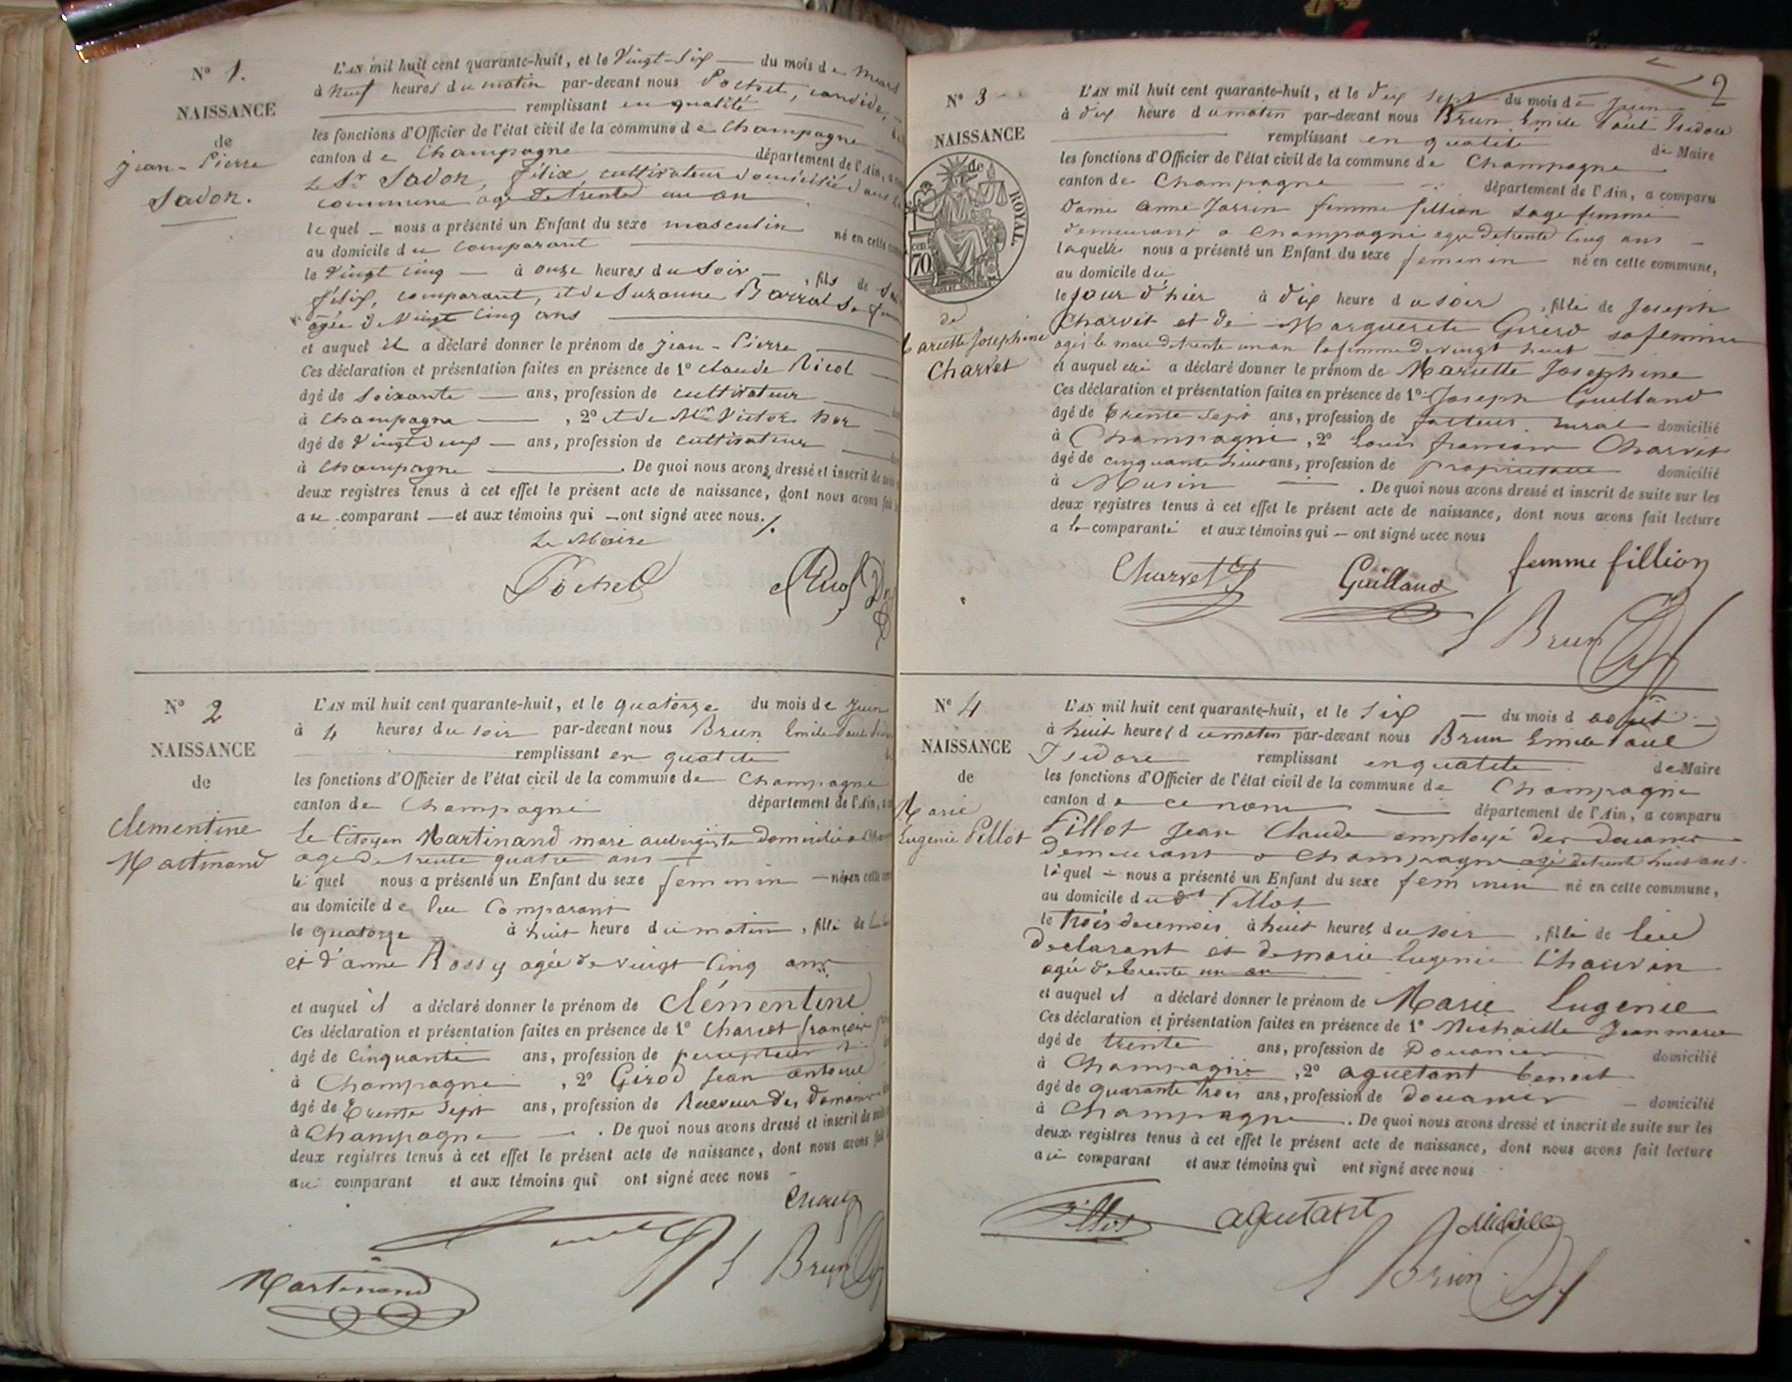 N° 1.
NAISSANCE
de
jean-Pierre
Savon.
L'AN mil huit cent quarante-huit, et le Vingt-six du mois de Mars
à neuf heures du matin par-devant nous Pochet,
remplissant en qualité
les fonctions d'Officier de l'état civil de la commune de Champagne
canton de Champagne département de l'Ain,
Le Sr Savon, félix, cultivateur domicilié dans
commune agé de trente un an
lequel nous a présenté un Enfant du sexe masculin né en cette
au domicile du comparant
le Vingt cinq à onze heures du soir, fils de
félix, comparant, et de Suzanne Barral sa
agée de Vingt cinq ans
et auquel il a déclaré donner le prénom de jean-Pierre
Ces déclaration et présentation faites en présence de 1° claude
âgé de soixante ans, profession de cultivateur
à Champagne, 2° et de Mr Victor
âgé de Vingt deux ans, profession de cultivateur
à Champagne. De quoi nous avons dressé et inscrit de
deux registres tenus à cet effet le présent acte de naissance, dont nous avons fait
au comparant et aux témoins qui ont signé avec nous.
Le Maire
Pochet
N° 2
NAISSANCE
de
Clémentine
Martinand
L'AN mil huit cent quarante-huit, et le quatorze du mois de Juin
à 4 heures du soir par-devant nous Brun Emile Paul
remplissant en qualité
les fonctions d'Officier de l'état civil de la commune de Champagne
canton de Champagne département de l'Ain,
Le Citoyen Martinand domicilié a
age de trente quatre ans
le quel nous a présenté un Enfant du sexe feminin né en cette
au domicile de lui Comparant
le quatorze à huit heure du matin, fille de
et d'anne Rossy agée de vingt cinq ans
et auquel il a déclaré donner le prénom de Clémentine
Ces déclaration et présentation faites en présence de 1° Charvet françois
âgé de Cinquante ans, profession de percepteur
à Champagne, 2° Girod Jean antoine
âgé de trente sept ans, profession de Receveur des Domaines
à Champagne. De quoi nous avons dressé et inscrit de
deux registres tenus à cet effet le présent acte de naissance, dont nous avons
au comparant et aux témoins qui ont signé avec nous
E Brun
Martinand
2
N° 3
NAISSANCE
ROYAL
70
de
Mariette Josephine
Charvet
L'AN mil huit cent quarante-huit, et le dix sept du mois de Juin
à dix heure du matin par-devant nous Brun Emile Paul Isidore
remplissant en qualité de Maire
les fonctions d'Officier de l'état civil de la commune de Champagne
canton de Champagne département de l'Ain, a comparu
Dame anne Jarrin femme fillion sage femme
demeurant a Champagne agée de trente cinq ans
laquelle nous a présenté un Enfant du sexe feminin né en cette commune,
au domicile du
le jour d'hier à dix heure du soir, fille de Joseph
Charvet et de Marguerite sa femme
agés le mari de trente un an la femme de vingt huit
et auquel elle a déclaré donner le prénom de Mariette Josephine
Ces déclaration et présentation faites en présence de 1° Joseph Guilland
âgé de trente sept ans, profession de facteur rural domicilié
à Champagne, 2° Louis françois Charvet
âgé de cinquante huit ans, profession de propriétaire domicilié
à Musin. De quoi nous avons dressé et inscrit de suite sur les
deux registres tenus à cet effet le présent acte de naissance, dont nous avons fait lecture
a la comparante et aux témoins qui ont signé avec nous
Charvet Guilland femme fillion
E Brun
N° 4
NAISSANCE
de
Marie
Eugenie Pillot
L'AN mil huit cent quarante-huit, et le six du mois d'août
à huit heures du matin par-devant nous Brun Emile Paul
Isidore remplissant en qualité de Maire
les fonctions d'Officier de l'état civil de la commune de Champagne
canton de ce nom département de l'Ain, a comparu
Pillot Jean Claude employé des douanes
demeurant a Champagne agé de trente huit ans
lequel nous a présenté un Enfant du sexe feminin né en cette commune,
au domicile du dt Pillot
le trois du mois à huit heures du soir, fille de lui
declarant et de marie Eugenie Chauvin
agée de trente un an
et auquel il a déclaré donner le prénom de Marie Eugenie
Ces déclaration et présentation faites en présence de 1° Michaille Jean marie
âgé de trente ans, profession de Douanier domicilié
à Champagne, 2° aguetant benoit
âgé de quarante trois ans, profession de douanier domicilié
à Champagne. De quoi nous avons dressé et inscrit de suite sur les
deux registres tenus à cet effet le présent acte de naissance, dont nous avons fait lecture
au comparant et aux témoins qui ont signé avec nous
Pillot aguetant
E Brun